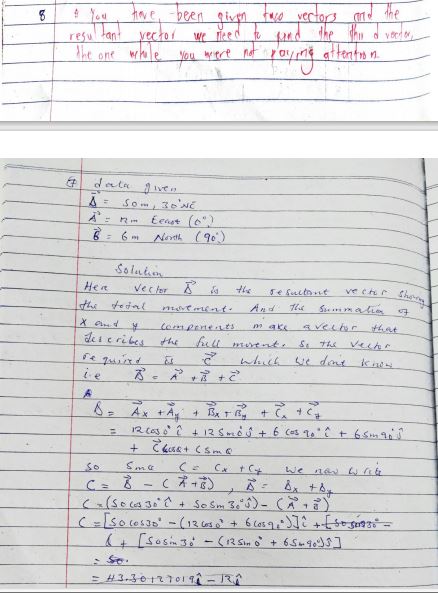 8 You have been given two vectors and the
resultant vector we need to find the third vector,
the one while you were not paying attention.
data given
D⃗ = 50m, 30° NE
A⃗ = 12m East (0°)
B⃗ = 6m North (90°)
Solution
Here vector D⃗ is the resultant vector showing
the total movement. And the summation of
x and y components make a vector that
describes the full movent. So the vector
required is C⃗ which we dont know
i.e D⃗ = A⃗ + B⃗ + C⃗
D = A⃗x + A⃗y + B⃗x + B⃗y + C⃗x + C⃗y
= 12cos0° î + 12sin0° ĵ + 6cos90° î + 6sin90° ĵ
+ C⃗cosα + Csinα
so Since C = Cx + Cy we now write
C = D⃗ - (A⃗ + B⃗), D⃗ = Dx + Dy
C = (50cos30° î + 50sin30° ĵ) - (A⃗ + B⃗)
C = [50cos30° - (12cos0° + 6cos90°)] î +
+ [50sin30° - (12sin0° + 6sin90°) ĵ]